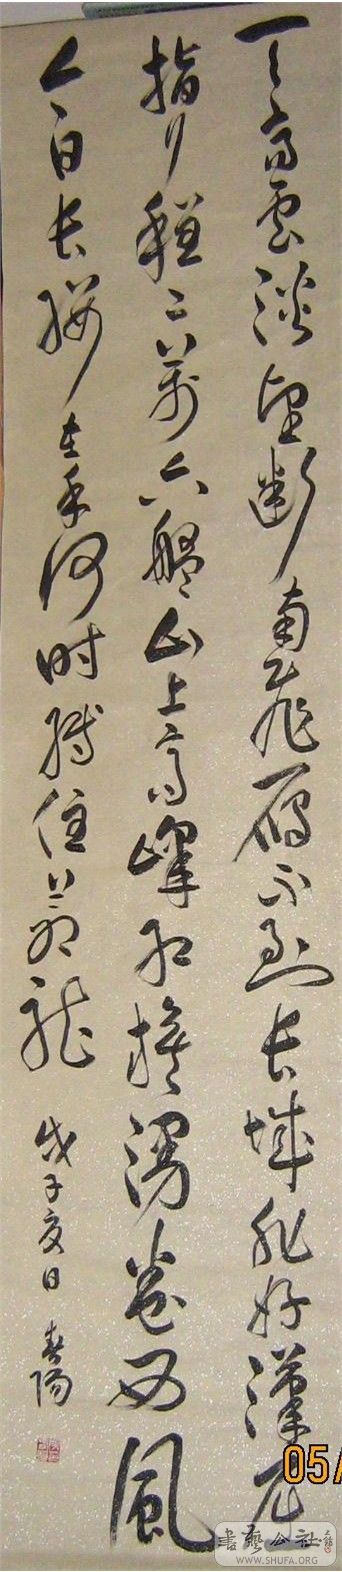 天高雲淡望断南飛雁不到长城非好漢屈
指行程二萬六盤山上高峰红旗漫卷西風
今日长缨在手何时缚住蒼龍
戊子夏日 春陽
05/
書藝公社
WWW.SHUFA.ORG